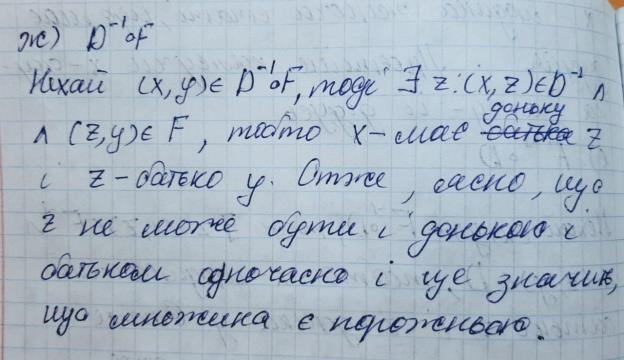 ж) D⁻¹∘F
Нехай (x,y)∈ D⁻¹∘F, тоді ∃ z:(x,z)∈D⁻¹ ∧
∧ (z,y)∈ F, тобто x-має доньку z
і z-батько y. Отже, ясно, що
z не може бути і донькою і
батьком одночасно і це значить,
що множина є порожньою.